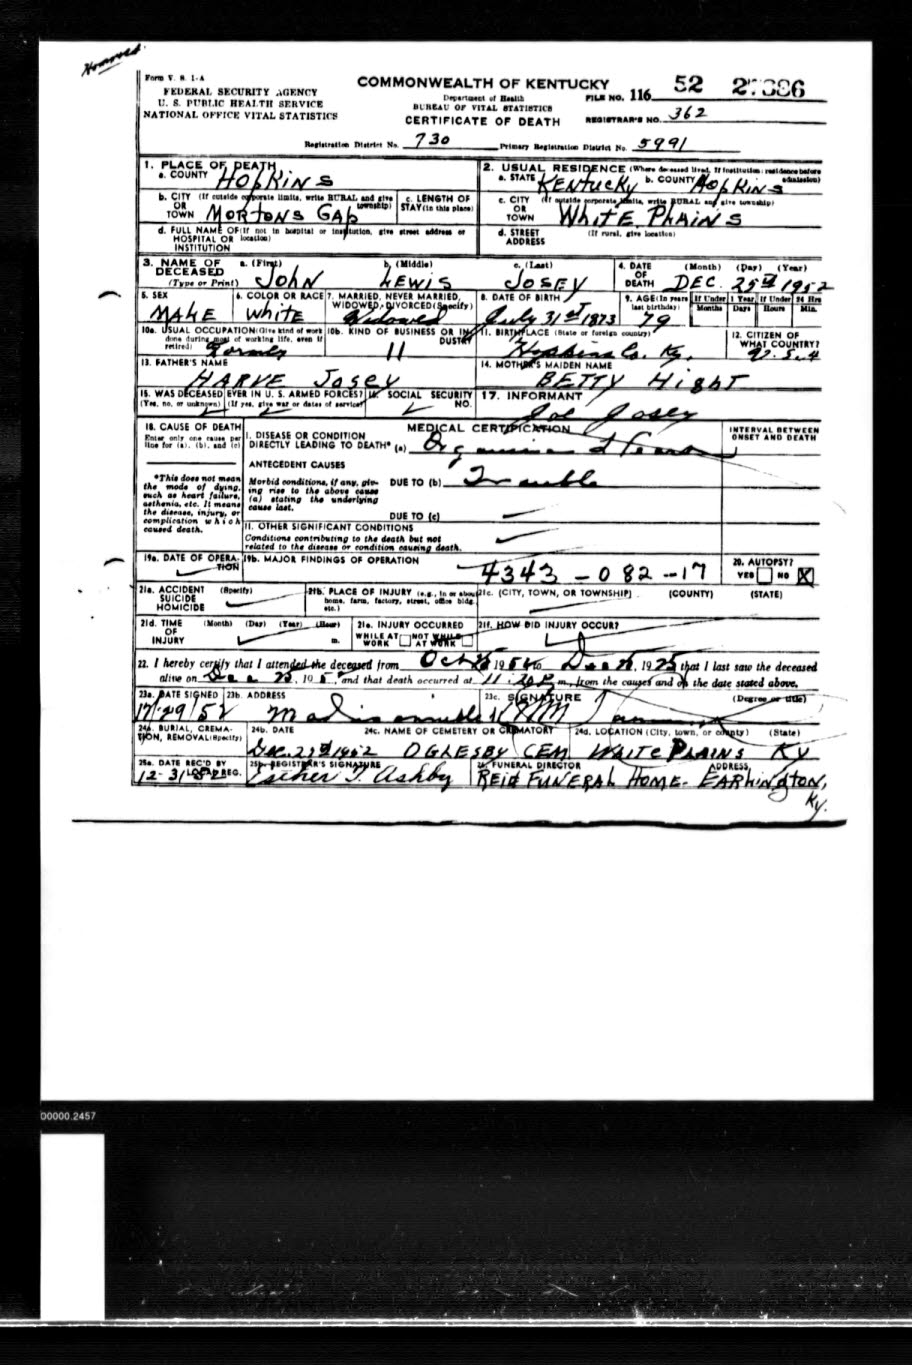 Form V. S. 1-A
FEDERAL SECURITY AGENCY
U. S. PUBLIC HEALTH SERVICE
NATIONAL OFFICE VITAL STATISTICS
COMMONWEALTH OF KENTUCKY
Department of Health
BUREAU OF VITAL STATISTICS
CERTIFICATE OF DEATH
FILE NO. 116 52
REGISTRAR'S NO. 362
Registration District No. 730 Primary Registration District No. 5991
1. PLACE OF DEATH
a. COUNTY HOPKINS
2. USUAL RESIDENCE (Where deceased lived. If institution: residence before admission)
a. STATE KENTUCKY b. COUNTY HOPKINS
b. CITY OR TOWN (If outside corporate limits, write RURAL and give township) MORTONS GAP
c. LENGTH OF STAY (in this place)
c. CITY OR TOWN (If outside corporate limits, write RURAL and give township) WHITE PLAINS
d. FULL NAME OF HOSPITAL OR INSTITUTION (If not in hospital or institution, give street address or location)
d. STREET ADDRESS (If rural, give location)
3. NAME OF DECEASED (Type or Print) a. (First) JOHN b. (Middle) LEWIS c. (Last) JOSEY
4. DATE OF DEATH (Month) (Day) (Year) DEC. 25th 1952
5. SEX MALE
6. COLOR OR RACE White
7. MARRIED, NEVER MARRIED, WIDOWED, DIVORCED (Specify) Widowed
8. DATE OF BIRTH July 31st 1873
9. AGE (In years last birthday) 79 If Under 1 Year Months Days If Under 24 Hrs Hours Min.
10a. USUAL OCCUPATION (Give kind of work done during most of working life, even if retired)
10b. KIND OF BUSINESS OR INDUSTRY 11
11. BIRTHPLACE (State or foreign country) Hopkins Co. Ky.
12. CITIZEN OF WHAT COUNTRY? U.S.A
13. FATHER'S NAME HARVE JOSEY
14. MOTHER'S MAIDEN NAME BETTY HIGHT
15. WAS DECEASED EVER IN U. S. ARMED FORCES? (Yes, no, or unknown) (If yes, give war or dates of service)
16. SOCIAL SECURITY NO.
17. INFORMANT Joe Josey
18. CAUSE OF DEATH
Enter only one cause per line for (a), (b), and (c)
MEDICAL CERTIFICATION
INTERVAL BETWEEN ONSET AND DEATH
I. DISEASE OR CONDITION DIRECTLY LEADING TO DEATH* (a)
*This does not mean the mode of dying, such as heart failure, asthenia, etc. It means the disease, injury, or complication which caused death.
ANTECEDENT CAUSES
Morbid conditions, if any, giving rise to the above cause (a) stating the underlying cause last.
DUE TO (b) Trouble
DUE TO (c)
II. OTHER SIGNIFICANT CONDITIONS
Conditions contributing to the death but not related to the disease or condition causing death.
19a. DATE OF OPERATION
19b. MAJOR FINDINGS OF OPERATION
4343-082-17
20. AUTOPSY?
YES NO X
21a. ACCIDENT SUICIDE HOMICIDE (Specify)
21b. PLACE OF INJURY (e.g., in or about home, farm, factory, street, office bldg. etc.)
21c. (CITY, TOWN, OR TOWNSHIP) (COUNTY) (STATE)
21d. TIME OF INJURY (Month) (Day) (Year) (Hour) m.
21e. INJURY OCCURRED WHILE AT WORK NOT WHILE AT WORK
21f. HOW DID INJURY OCCUR?
22. I hereby certify that I attended the deceased from Oct , 19 to , 19 that I last saw the deceased
alive on , 19 and that death occurred at m., from the causes and on the date stated above.
23a. DATE SIGNED 12/29/52
23b. ADDRESS Madisonville
23c. SIGNATURE (Degree or title)
24a. BURIAL, CREMATION, REMOVAL (Specify)
24b. DATE 1952
24c. NAME OF CEMETERY OR CREMATORY OGLESBY CEM
24d. LOCATION (City, town, or county) (State) WHITE PLAINS KY
25a. DATE REC'D BY LOCAL REG. 12-31-52
25b. REGISTRAR'S SIGNATURE Esther T. Ashby
26. FUNERAL DIRECTOR ADDRESS
REID FUNERAL HOME. EARLINGTON, Ky.
00000.2457